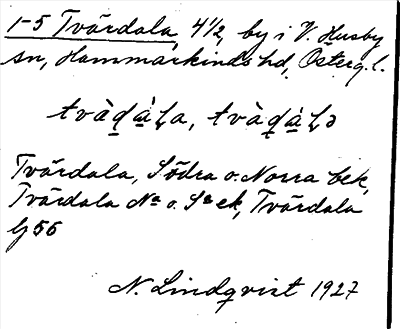 1-5 Tvärdala, 4 1/2, by i V. Husby
sn, Hammarkinds hd, Österg. l.
tvὰḍὰ̣ḷa, tvὰḍὰ̣ḷə
Tvärdala, Södra o. Norra bek,
Tvärdala Na o. Sa ek, Tvärdala
G 56
N. Lindqvist 1927